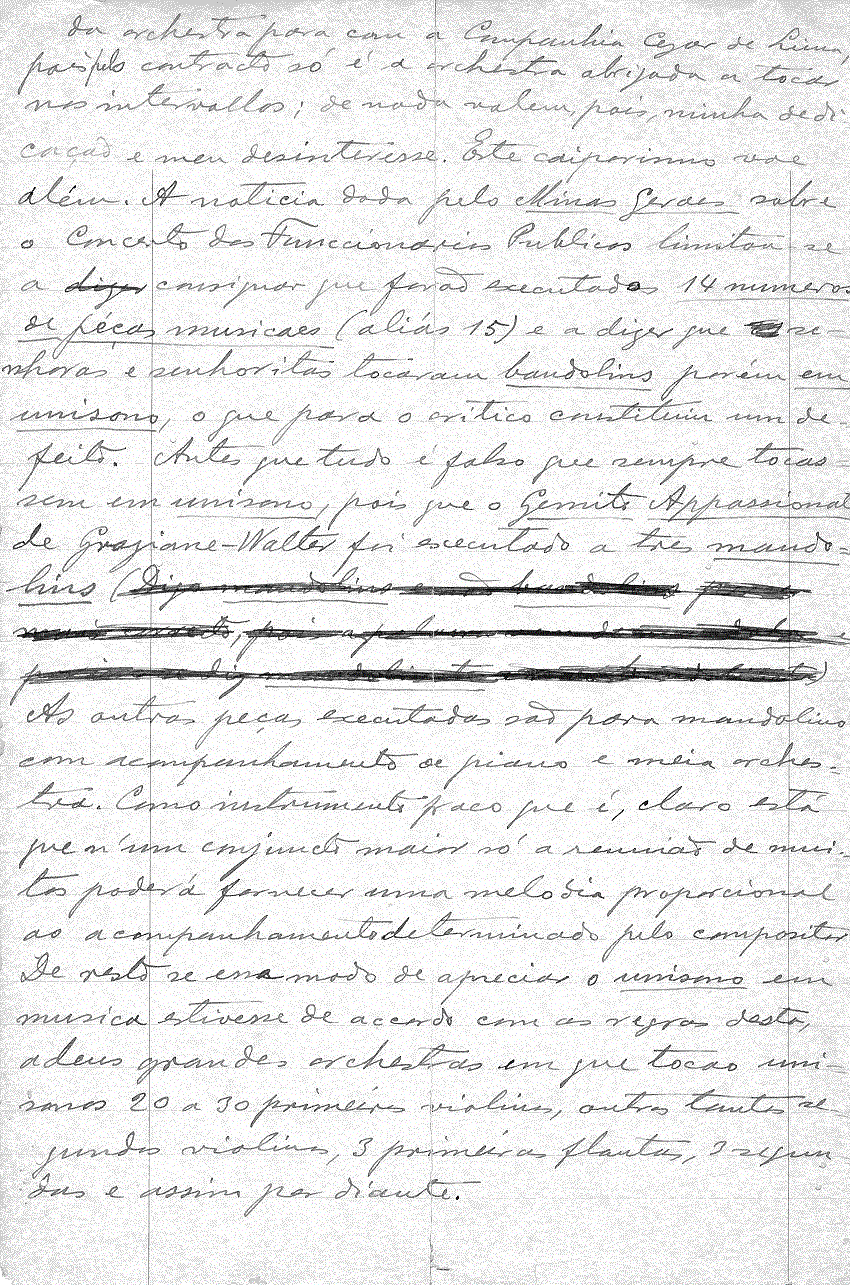 da orchestra para com a Companhia Cezar de Lima,
pois pelo contracto só é a orchestra obrigada a tocar
nos intervallos; de nada valem, pois, minha dedi-
cação e meu desinteresse. Este caiporismo vae
além. A noticia dada pelo Minas Geraes sobre
o Concerto dos Funccionarios Publicos limitou-se
a dizer consignar que forão executados 14 numeros
de péças musicaes (aliás 15) e a dizer que se-
nhoras e senhoritas tocaram bandolins porém em
unisono, o que para o critico constituiu um de-
feito. Antes que tudo é falso que sempre tocas-
sem em unisono, pois que o Gemito Appassional
de Graziane-Walter foi executado a tres mando-
lins (Digo mandolins e não bandolins
mais correcto, pois a palavra vem de

As outras peças executadas são para mandolino
com acompanhamento de piano e meia orches-
tra. Como instrumento fraco que é, claro está
que n'um conjuncto maior só a reunião de mui-
tos poderá fornecer uma melodia proporcional
ao acompanhamento determinado pelo compositor
De resto se esse modo de apreciar o unisono em
musica estivesse de accordo com as regras desta,
adeus grandes orchestras em que tocão uni-
sonos 20 a 30 primeiros violinos, outros tantos se-
gundos violinos, 3 primeiras flautas, 3 segun
das e assim por diante.